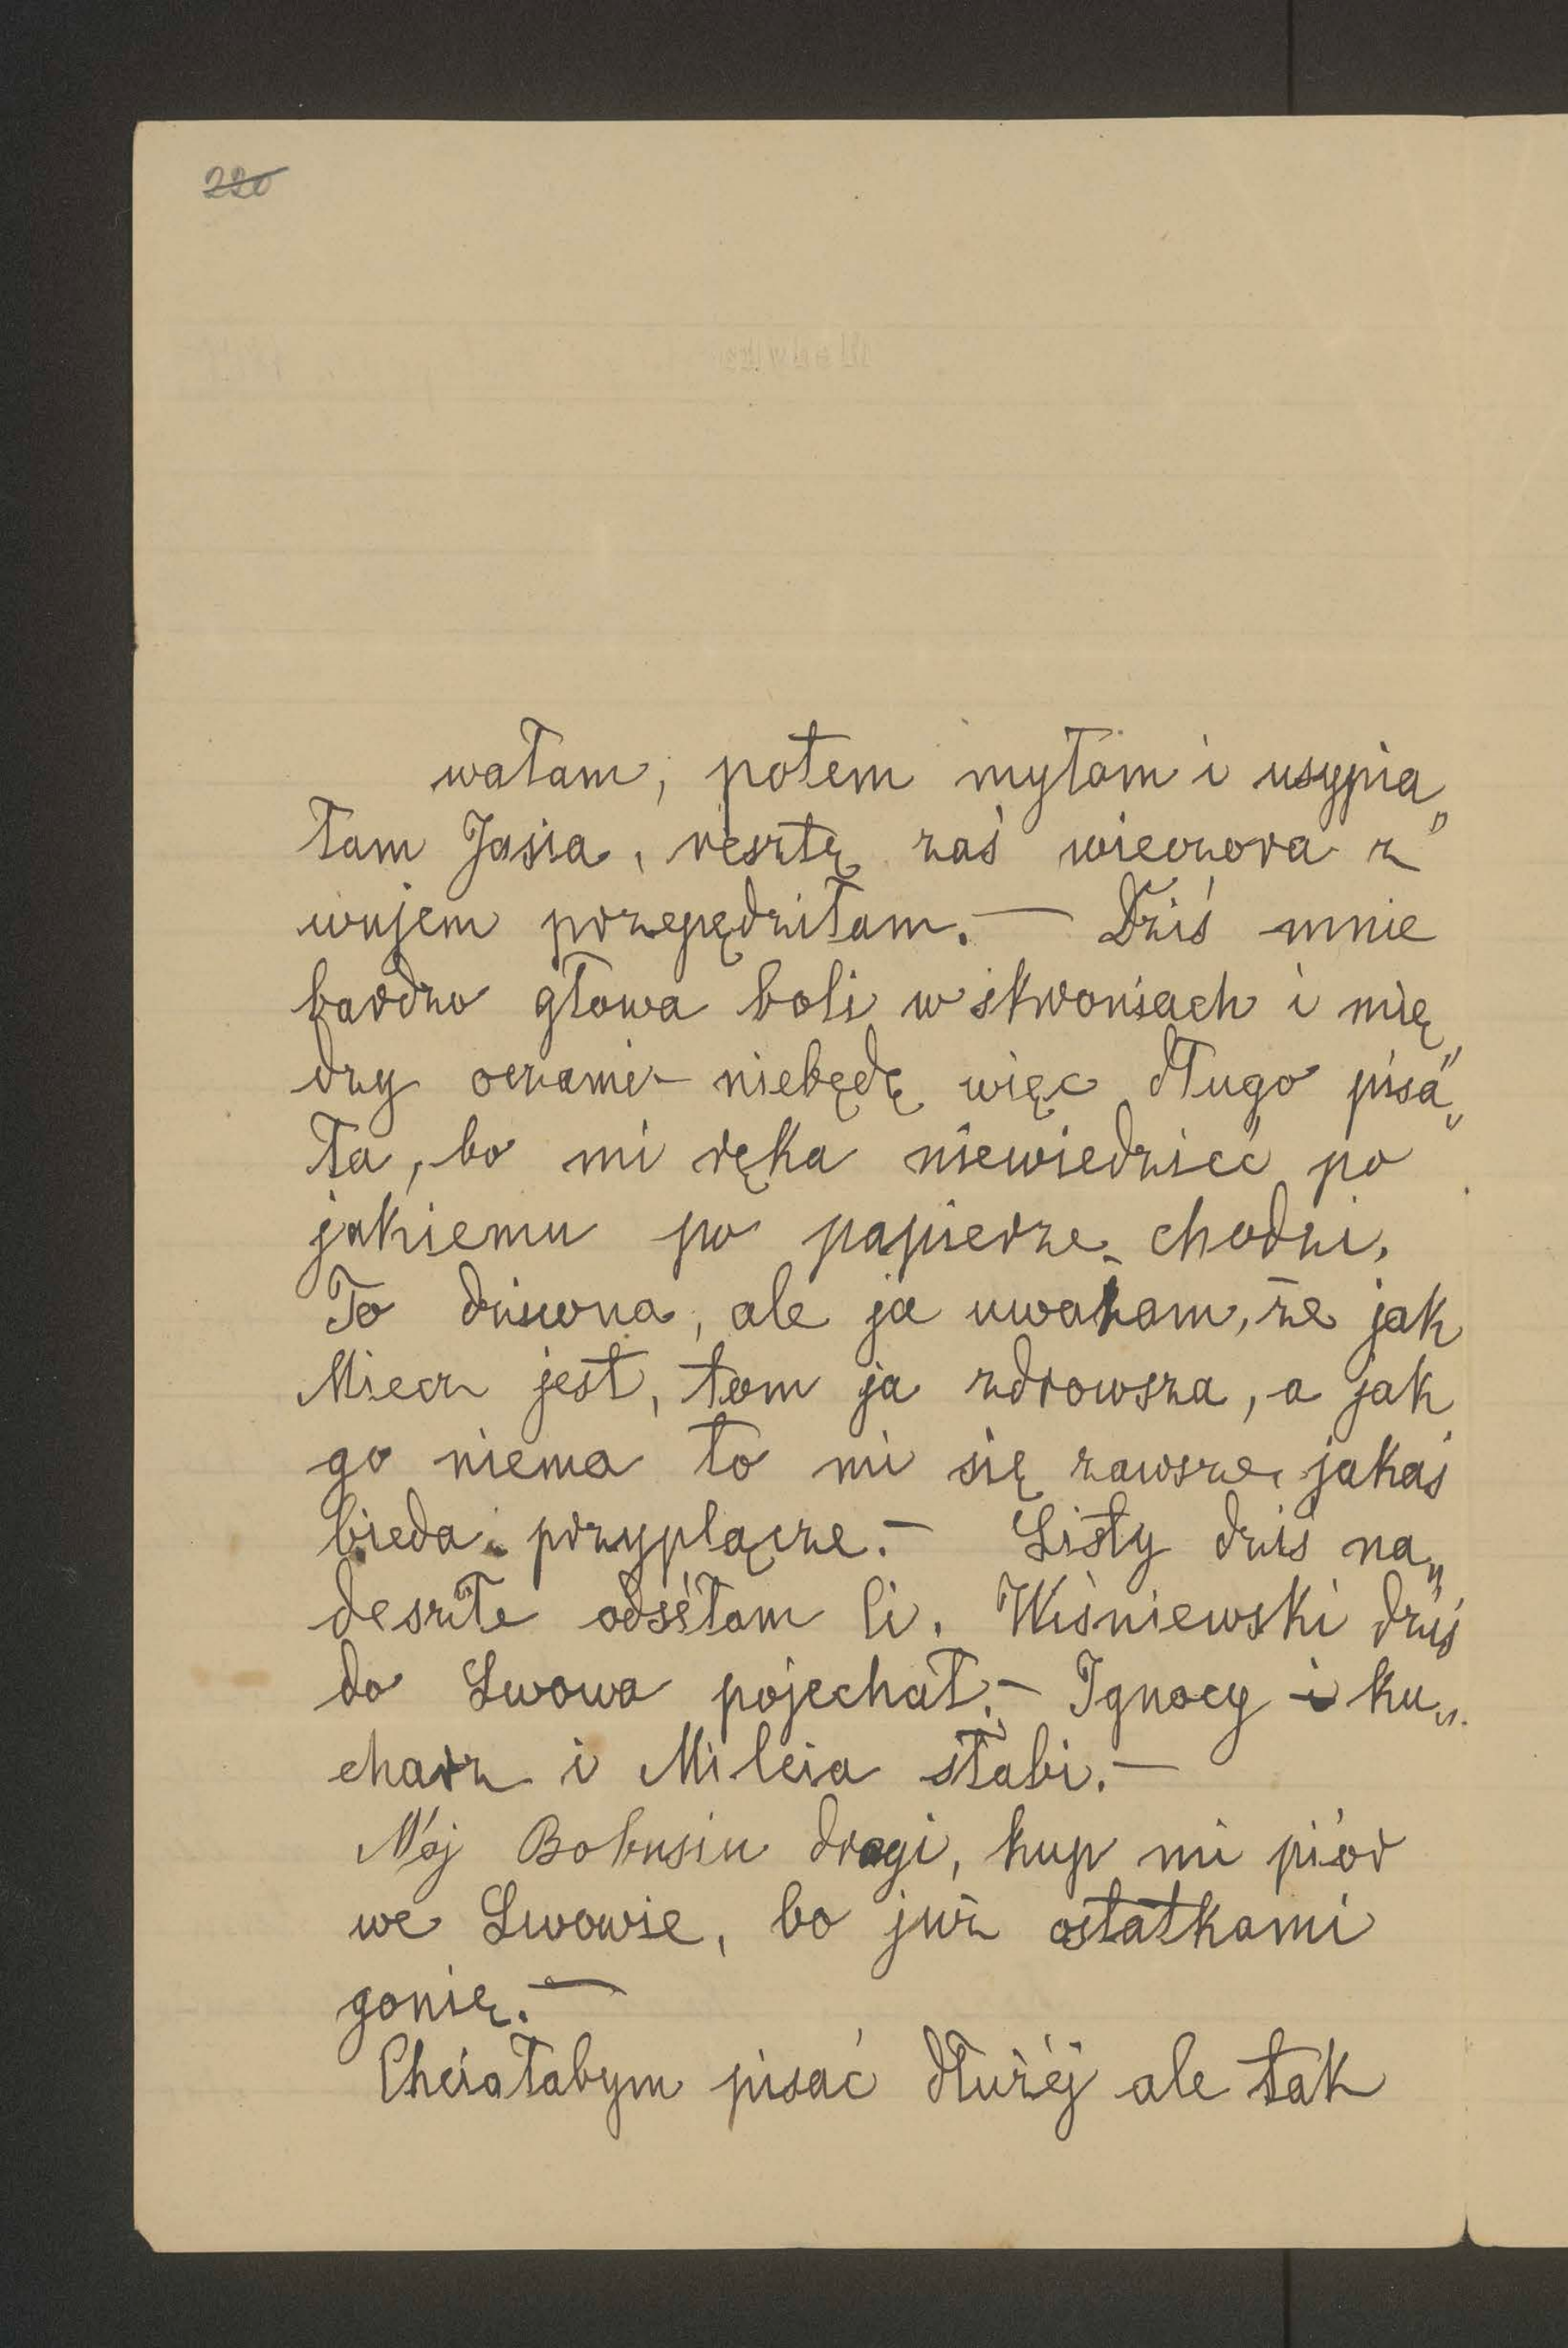 220
wałam, potem myłam i usypia„
łam Jasia, resztę zaś wieczora z
wujem przepędziłam. — Dziś mnie
bardzo głowa boli w skroniach i mię„
dzy oczami – niebędę więc długo pisa„
ła, bo mi ręka niewiedzieć po
jakiemu po papierze chodzi.
To dziwna, ale ja uważam, że jak
Miecz jest, tom ja zdrowsza, a jak
go niema to mi się zawsze jakaś
bieda przyplącze. – Listy dziś na„
deszłe odséłam Ci. Wiśniewski dziś
do Lwowa pojechał. – Ignacy i ku„
charz i Milcia słabi. —
Mój Bobusiu drogi, kup mi piór
we Lwowie, bo już ostatkami
gonię. —
Chciałabym pisać dłużéj ale tak